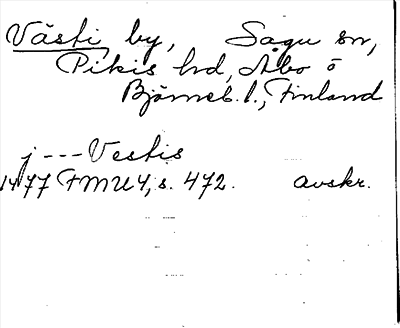 Västi by, Sagu sn,
Pikis hd, Åbo o
Björneb. l., Finland
j --- Vestis
1477 FMU 4, s. 472. avskr.